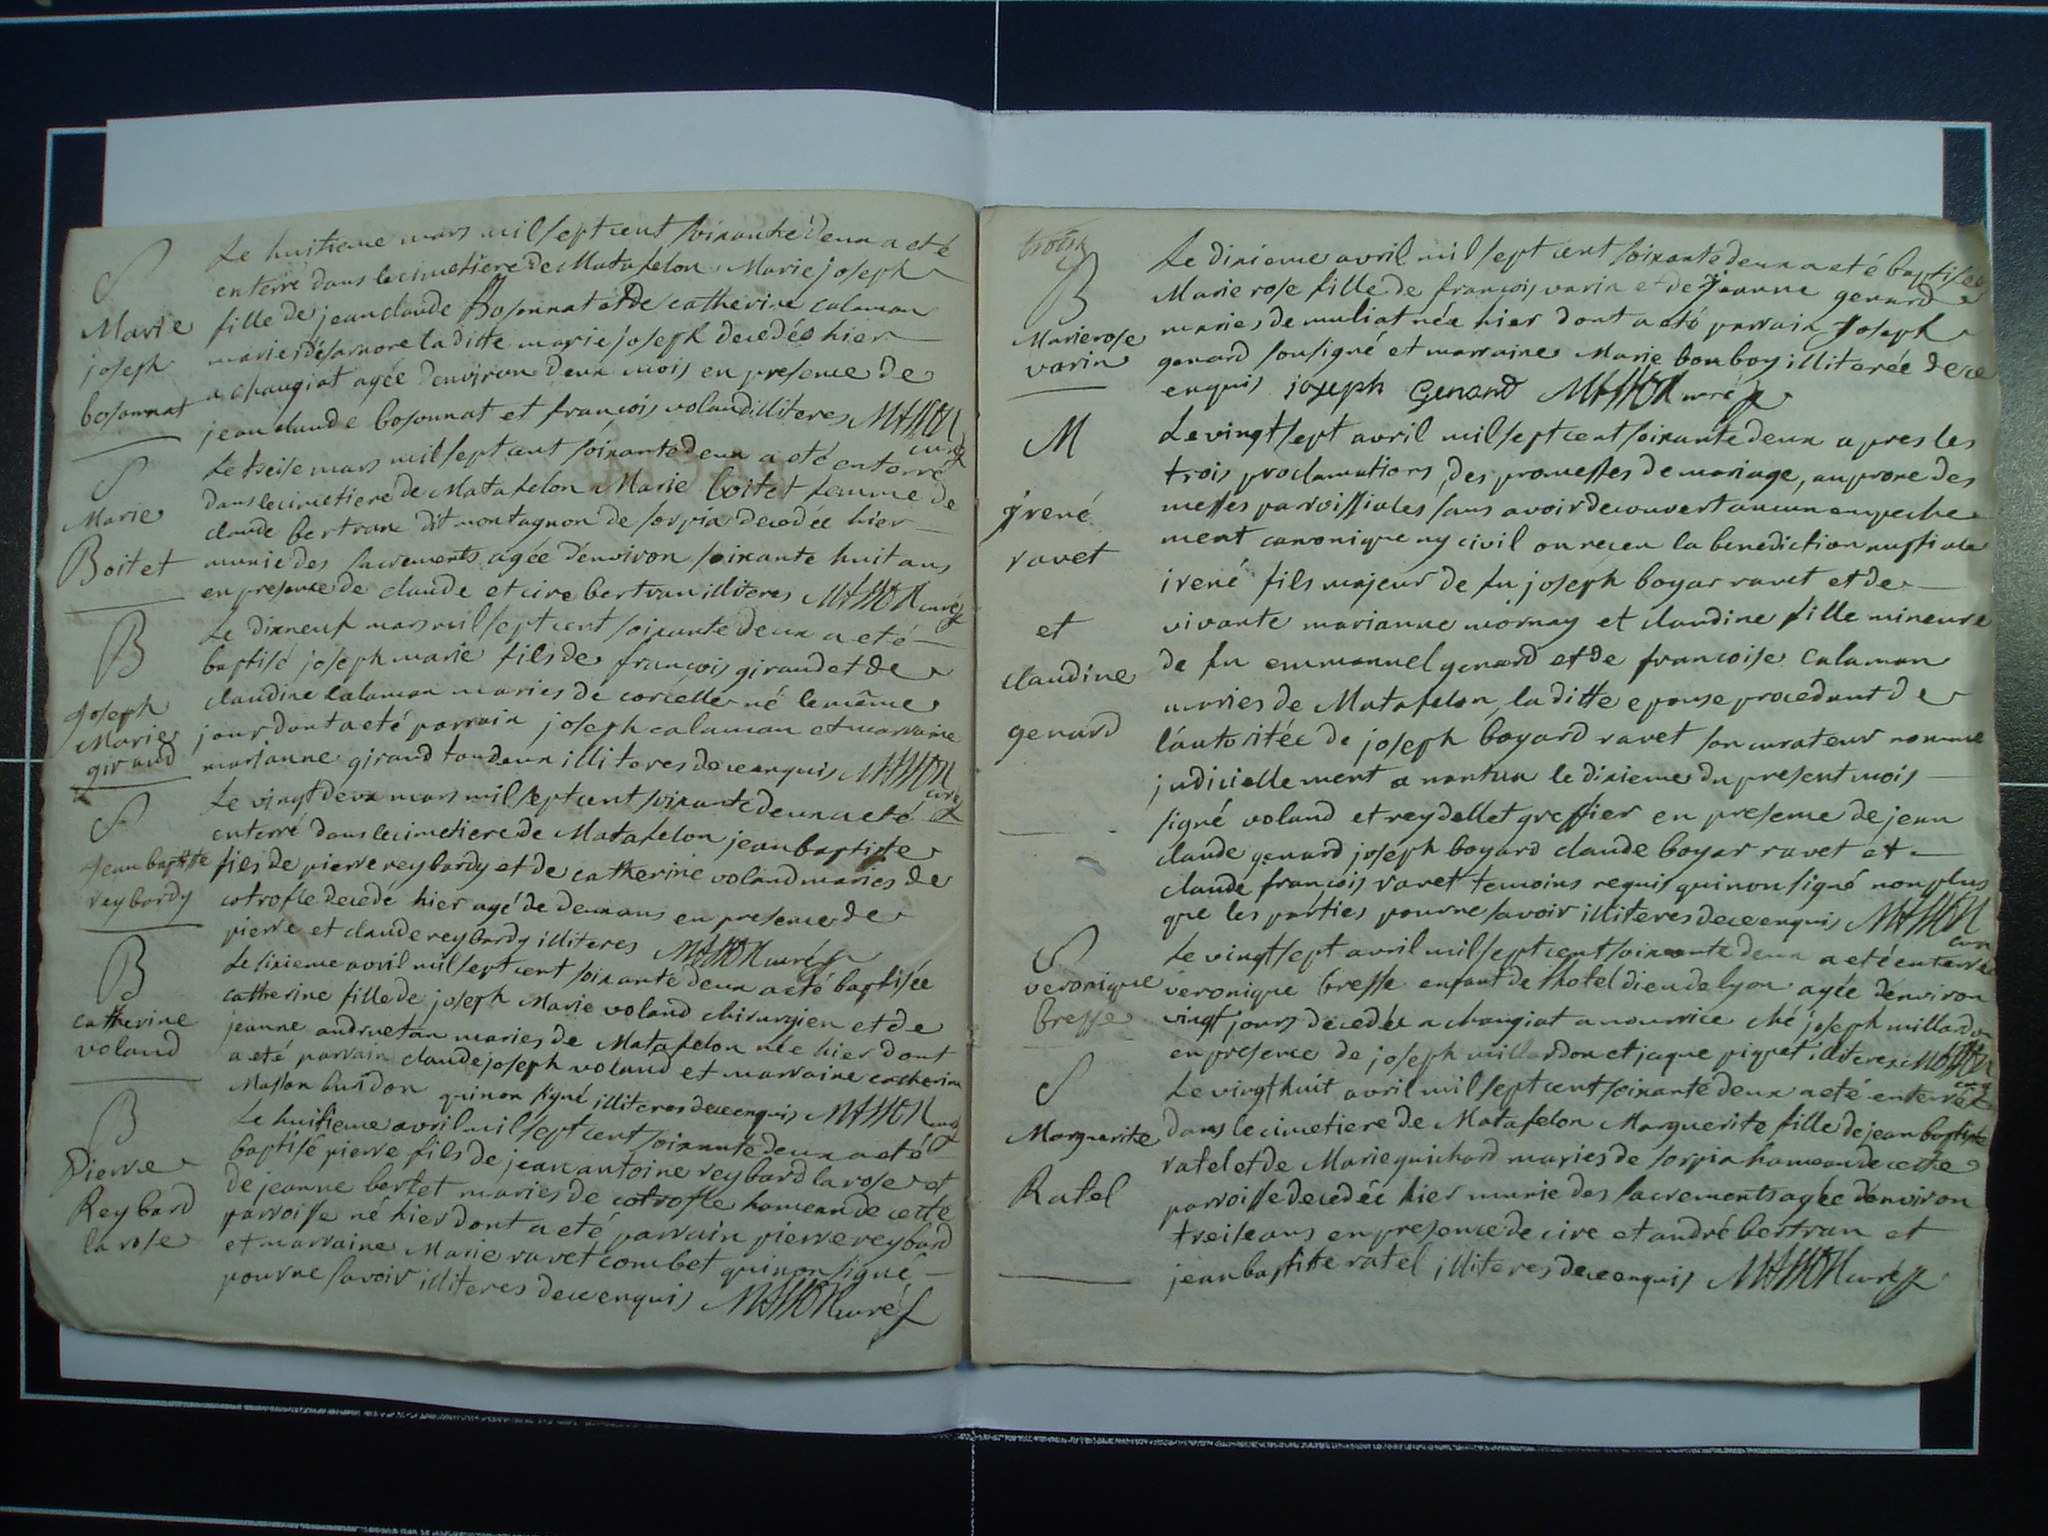 S
Marie
joseph
bosonnat
Le huitieme mars mil sept cent soixante deux a eté
enterré dans le cimetiere de Matafelon Marie joseph
fille de jean claude Bosonnat et de catherine calaman
mariés de samore la ditte marie joseph decedée hier
a changiat agée denviron deux mois en presence de
jean claude bosonnat et françois voland illiteres MASSON
curé
S
Marie
Boitet
Le treise mars mil sept cent soixante deux a eté enterré
dans le cimetiere de Matafelon Marie boitet femme de
claude bertran dit montagnon de sorpia decedée hier
munie des sacrements agée denviron soixante huit ans
en presence de claude et cire bertran illiteres MASSON curé
B
joseph
Marie
giraud
Le dixneuf mars mil sept cent soixante deux a eté
baptisé joseph marie fils de françois giraud et de
claudine calaman maries de corcelle né le même
jour dont a eté parrain joseph calaman et marraine
marianne giraud tous deux illiteres de ce enquis MASSON
curé
S
jean baptiste
reybardy
Le vingt deux mars mil sept cent soixante deux a eté
enterré dans le cimetiere de Matafelon jean baptiste
fils de pierre reybardy et de catherine voland maries de
cotrofle decedé hier agé de deux ans en presence de
pierre et claude reybardy illiteres MASSON curé
B
catherine
voland
Le sixieme avril mil sept cent soixante deux a eté baptisée
catherine fille de joseph Marie voland chirurgien et de
jeanne andruetan maries de Matafelon née hier dont
a eté parrain claude joseph voland et marraine catherine
Masson qui non signé illiteres de ce enquis MASSON curé
B
Pierre
Reybard
la rose
Le huitieme avril mil sept cent soixante deux a eté
baptisé pierre fils de jean antoine reybard la rose et
de jeanne bertet maries de cotrofle hameau de cette
parroisse né hier dont a eté parrain pierre reybard
et marraine Marie ravet combet qui non signé
pour ne savoir illiteres de ce enquis MASSON curé
B
Marie rose
varin
Le dixieme avril mil sept cent soixante deux a eté baptisée
Marie rose fille de françois varin et de jeanne genard
maries de muliat née hier dont a eté parrain joseph
genard sousigné et marraine Marie bonboy illiterée de ce
enquis joseph Genard MASSON curé
M
jrené
ravet
et
claudine
genard
Le vingt sept avril mil sept cent soixante deux apres les
trois proclamations des promesses de mariage, au prone des
messes parroissiales sans avoir decouvert aucun empeche
ment canonique ny civil on receu la benediction nuptiale
irené fils majeur de fu joseph boyar ravet et de
vivante marianne mornay et claudine fille mineure
de fu emmanuel genard et de françoise calaman
maries de Matafelon, la ditte epouse procedant de
l'autoritée de joseph boyard ravet son curateur nommé
judiciellement a nantua le dixieme du present mois
signé voland et reydellet greffier en presence de jean
claude genard joseph boyard claude boyar ravet et
claude françois ravet temoins requis qui non signé non plus
que les parties pour ne savoir illiteres de ce enquis MASSON
curé
S
veronique
bresse
Le vingt sept avril mil sept cent soixante deux a eté enterrée
veronique bresse enfant de l'hotel dieu de lyon agée denviron
vingt jours decedée a changiat a nourrice ché joseph millardon
en presence de joseph millardon et jaque piquet illiteres MASSON
curé
S
Marguerite
Ratel
Le vingt huit avril mil sept cent soixante deux a eté enterré
dans le cimetiere de Matafelon Marguerite fille de jean baptiste
ratel et de Marie guichard maries de sorpia hameau de cette
parroisse decedée hier munie des sacrements agée denviron
treise ans en presence de cire et andré bertran et
jean baptiste ratel illiteres de ce enquis MASSON curé